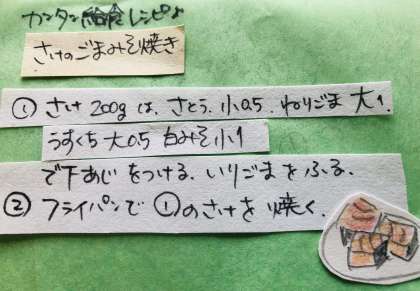 カンタン給食レシピ♪
さけのごまみそ焼き
① さけ 200gは、さとう 小0.5 ねりごま 大1
うすくち 大0.5 白みそ 小1
で下あじをつける。いりごまをふる。
② フライパンで①のさけを焼く。